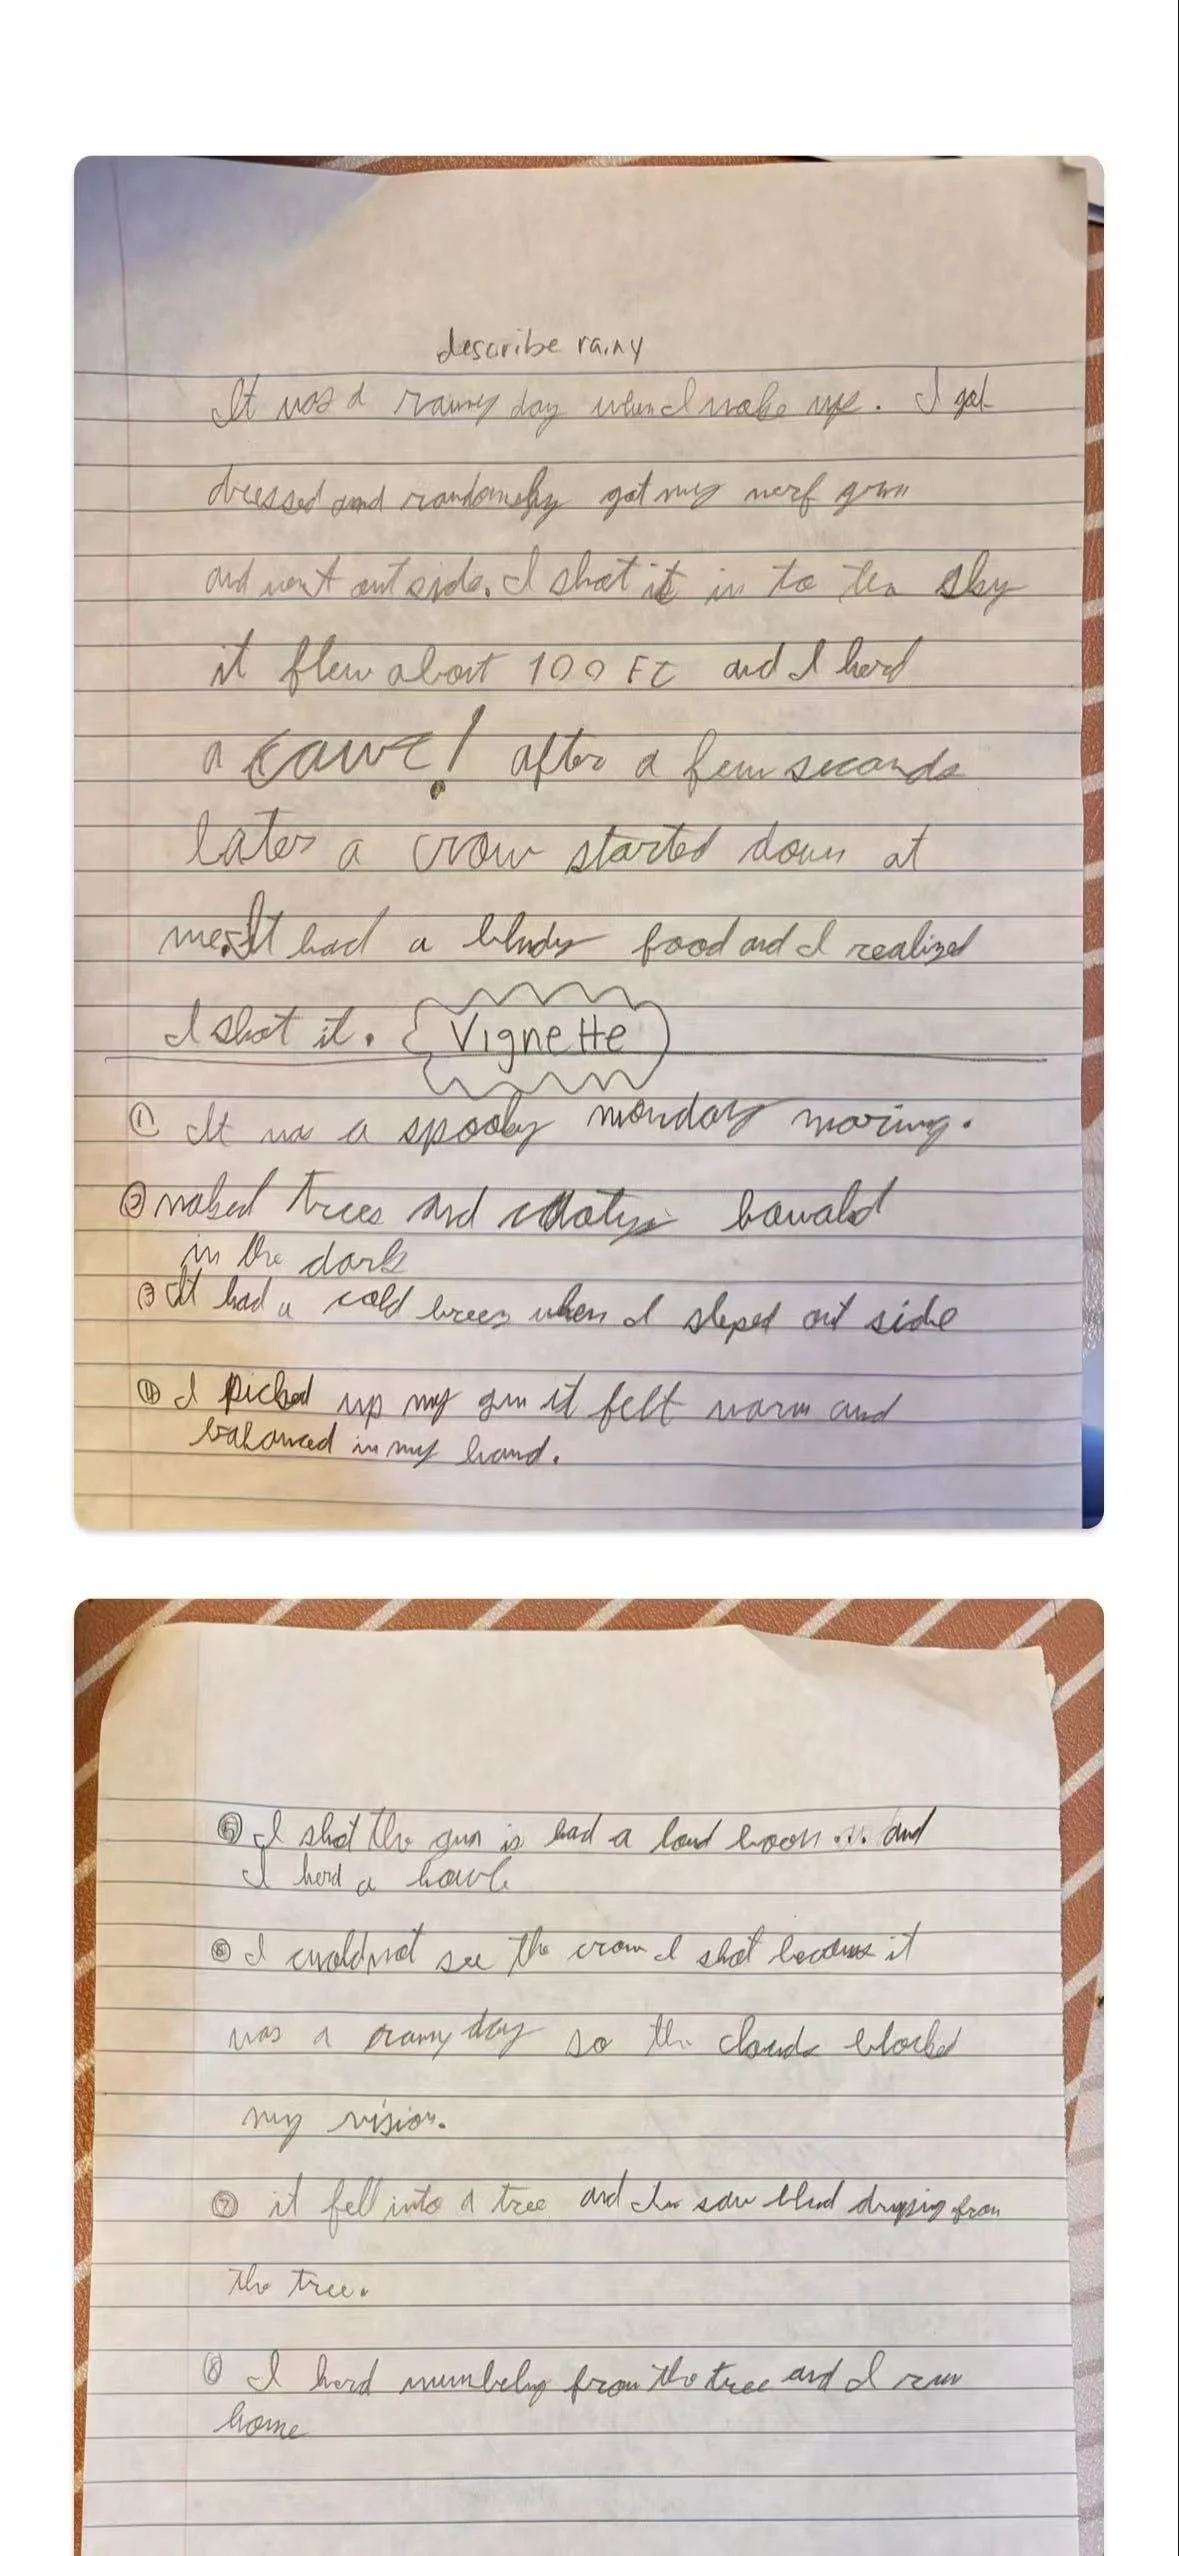 describe rainy
It was a rainy day when I wake up. I got
dressed and randomely got my nerf gun
and went out side. I shot it in to the sky
it flew about 100 FT and I herd
a cawc! after a few seconds
later a crow started down at
me. It had a bludy food and I realized
I shot it. Vignette
① It was a spooky monday moring.
② naked trees and
in the dark
③ It had a cold breez when I steped out side
④ I picked up my gun it felt warm and
balanced in my hand.
⑤ I shot the gun is had a loud boom and
I herd a
⑥ I couldnot see the crow I shot because it
was a rainy day so the clouds blocked
my vision.
⑦ it fell into a tree and I saw blud from
the tree.
⑧ I herd from the tree and I run
home